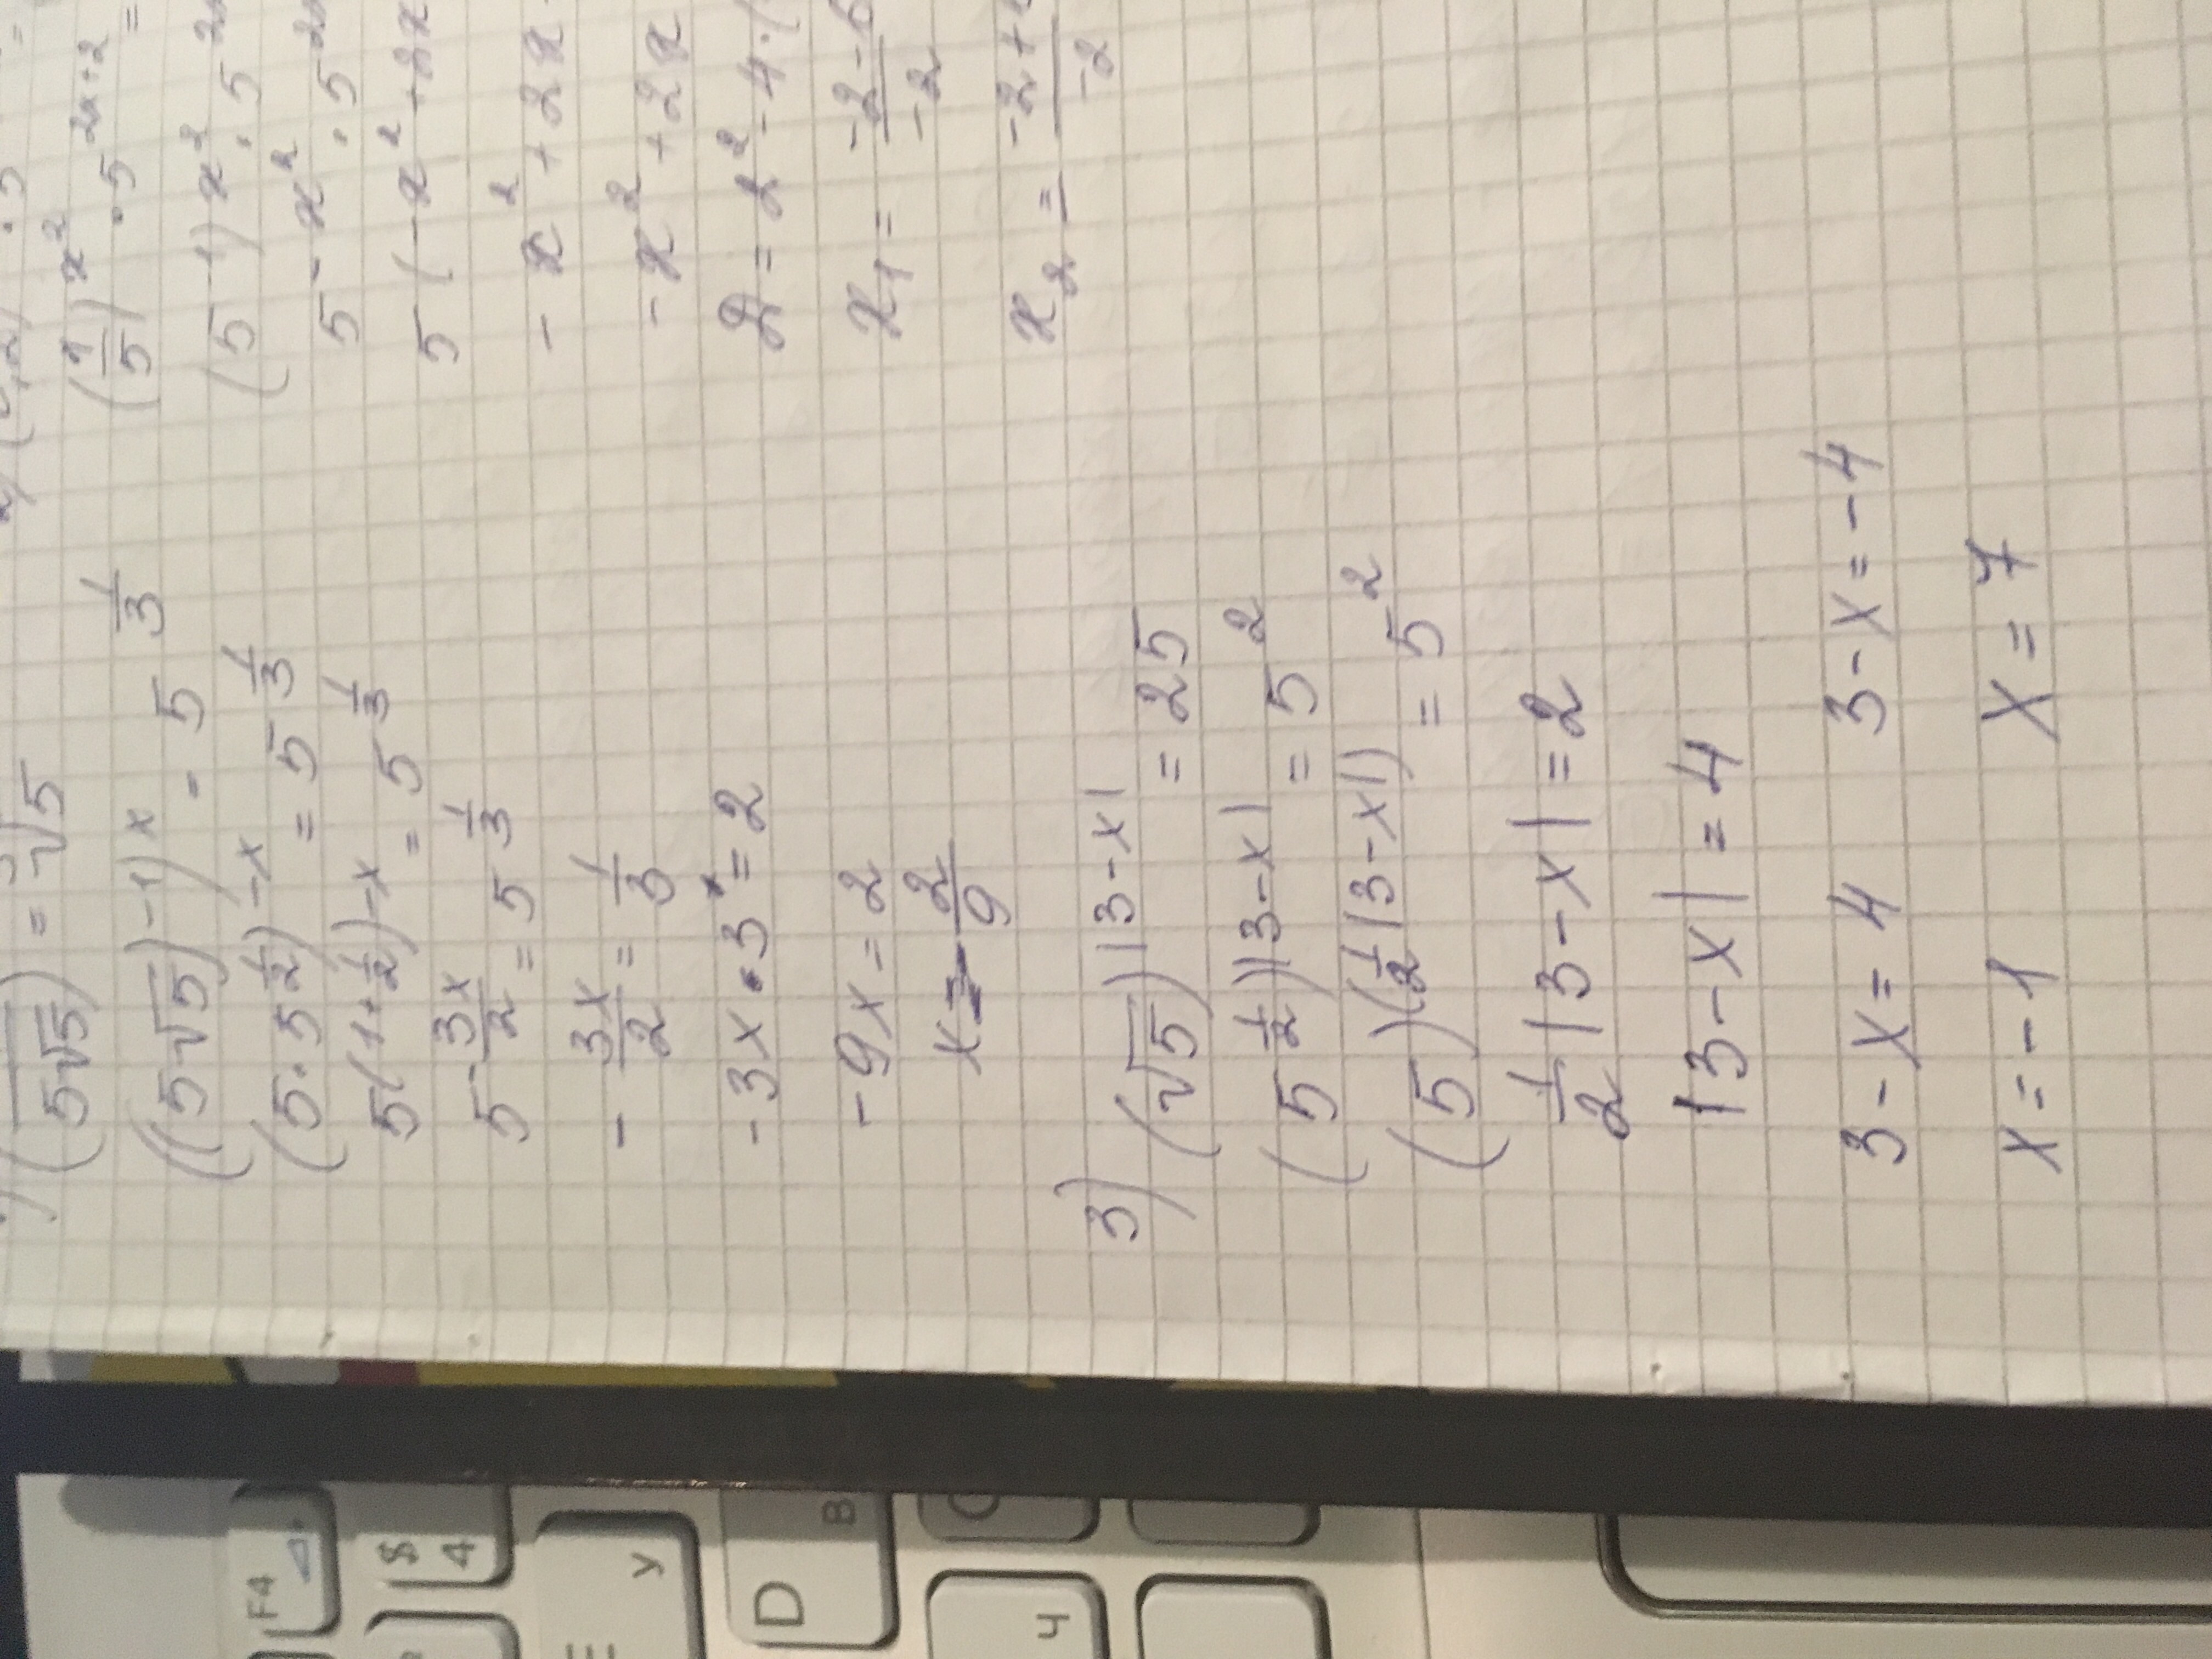 (5√5) = ³√5
((5√5)⁻¹)ˣ - 5^(1/3)
(5·5^(1/2))^(-x) = 5^(1/3)
5^(1+1/2)^(-x) = 5^(1/3)
5^(-3x/2) = 5^(1/3)
-3x/2 = 1/3
-3x·3 = 2
-9x = 2
x = 2/9
3) (√5)^|3-x| = 25
(5^(1/2))^|3-x| = 5²
(5)^(1/2|3-x|) = 5²
1/2|3-x| = 2
|3-x| = 4
3-x = 4 3-x = -4
x = -1 x = 7
(1/5)^x² · 5^(2x+2) =
(5⁻¹)^x² · 5
5^(-x²) · 5
5^(-x²+2x
-x² + 2x
-x² + 2x
D = 2² - 4·(
x₁ = -2-6/-2
x₂ = -2+/-2
F4
$
4
У
D
В
Ч